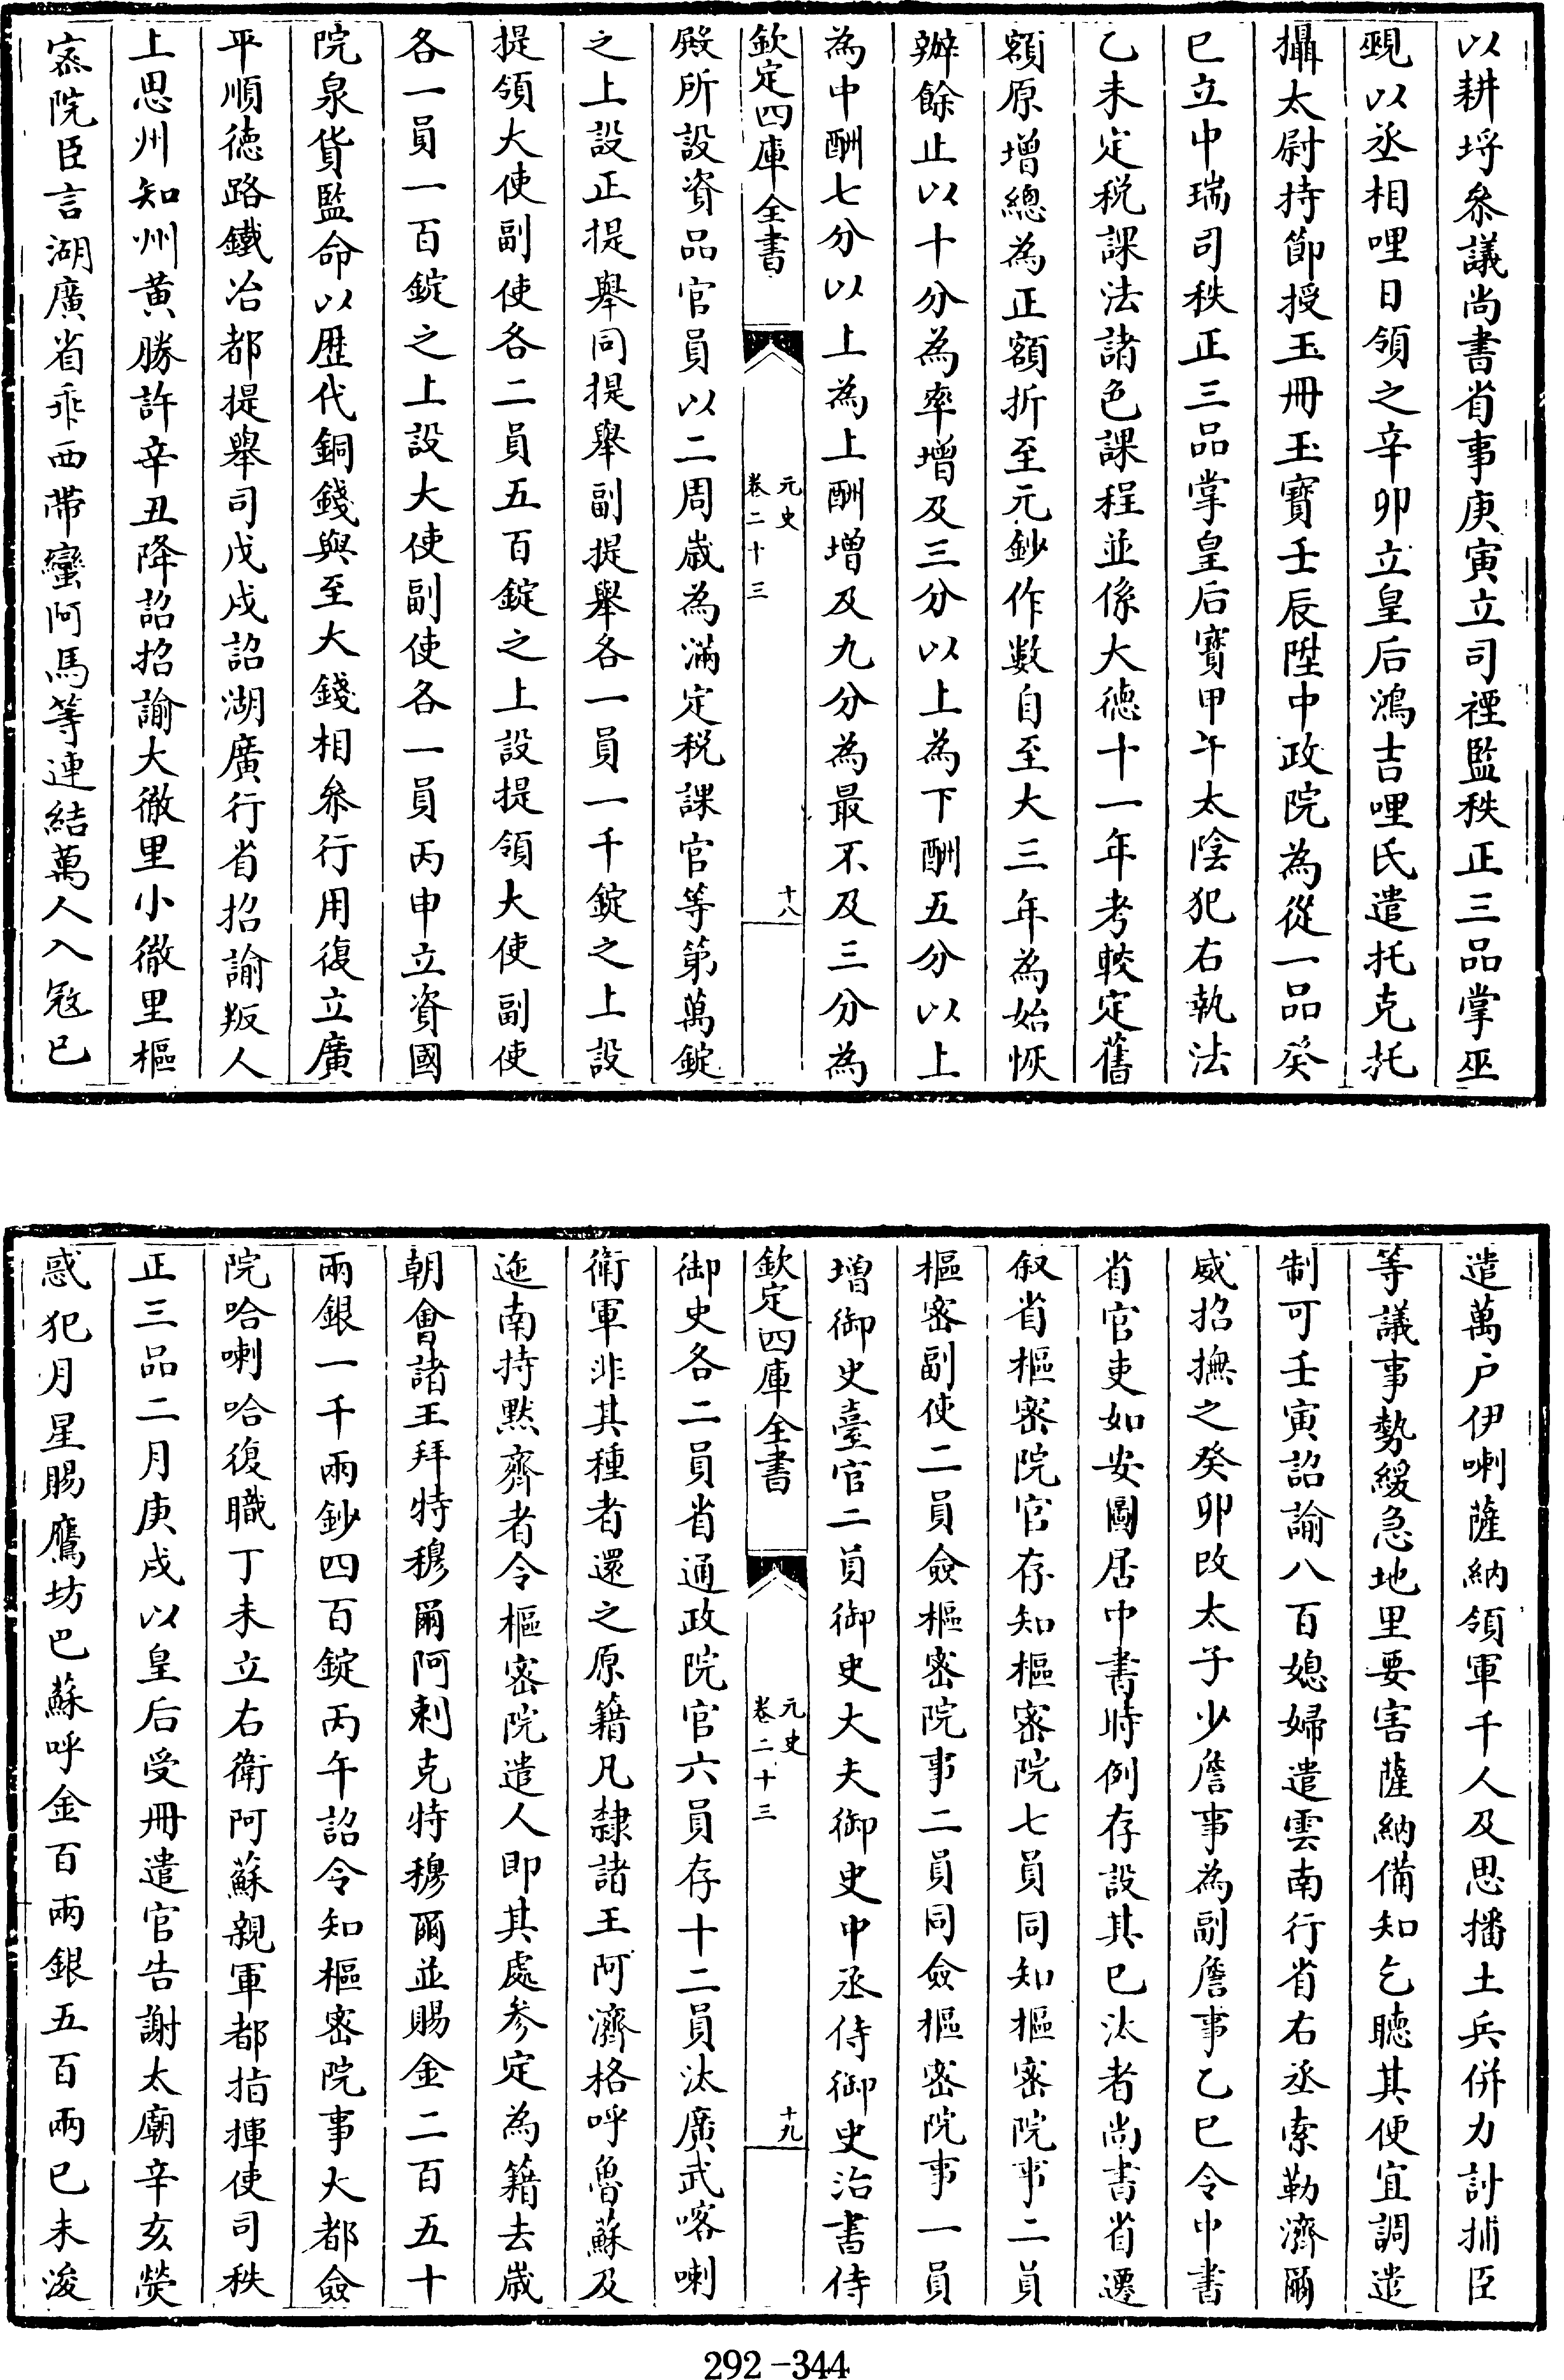 以耕埒叅議尚書省事庚寅立司禋監秩正三品掌巫
覡以丞相哩日領之辛卯立皇后鴻吉哩氏遣托克托
攝太尉持節授玉冊玉寶壬辰陞中政院為從一品癸
巳立中瑞司秩正三品掌皇后寳甲午太陰犯右執法
乙未定税課法諸色課程並係大德十一年考較定舊
額原增總為正額折至元鈔作數自至大三年為始恢
辦餘止以十分為率增及三分以上為下酬五分以上
為中酬七分以上為上酬增及九分為最不及三分為
欽定四庫全書
元史
卷二十三
十八
殿所設資品官員以二周歲為滿定税課官等第萬錠
之上設正提舉同提舉副提舉各一員一千錠之上設
提領大使副使各二員五百錠之上設提領大使副使
各一員一百錠之上設大使副使各一員丙申立資國
院泉貨監命以歴代銅錢與至大錢相叅行用復立廣
平順徳路鐵冶都提舉司戊戌詔湖廣行省招諭叛人
上思州知州黄勝許辛丑降詔招諭大徹里小徹里樞
宻院臣言湖廣省乖西帶蠻阿馬等連結萬人入冦已
遣萬户伊喇薩納領軍千人及思播土兵併力討捕臣
等議事勢緩急地里要害薩納備知乞聽其便宜調遣
制可壬寅詔諭八百媳婦遣雲南行省右丞索勒濟爾
威招撫之癸卯改太子少詹事為副詹事乙巳令中書
省官吏如安圖居中書時例存設其已汰者尚書省遷
叙省樞宻院官存知樞宻院七員同知樞宻院事二員
樞宻副使二員僉樞宻院事二員同僉樞宻院事一員
增御史臺官二員御史大夫御史中丞侍御史治書侍
欽定四庫全書
元史
卷二十三
十九
御史各二員省通政院官六員存十二員汰廣武喀喇
衛軍非其種者還之原籍凡隸諸王阿濟格呼魯蘇及
迤南持黙齊者令樞宻院遣人即其處参定為籍去歳
朝會諸王拜特穆爾阿剌克特穆爾並賜金二百五十
兩銀一千兩鈔四百錠丙午詔令知樞宻院事大都僉
院哈喇哈復職丁未立右衛阿蘇親軍都指揮使司秩
正三品二月庚戌以皇后受冊遣官告謝太廟辛亥熒
惑犯月星賜鷹坊巴蘇呼金百兩銀五百兩己未浚
292-344